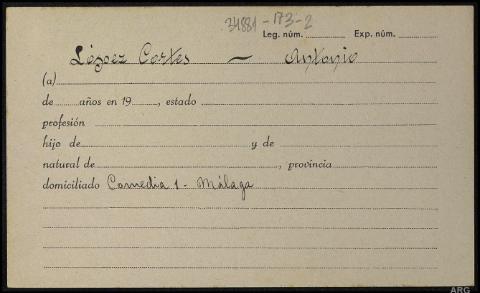 34881-173-2
Leg. núm. Exp. núm.
López Cortes — Antonio
(a)
de años en 19 , estado
profesión
hijo de y de
natural de , provincia
domiciliado Comedia 1 - Málaga
ARG